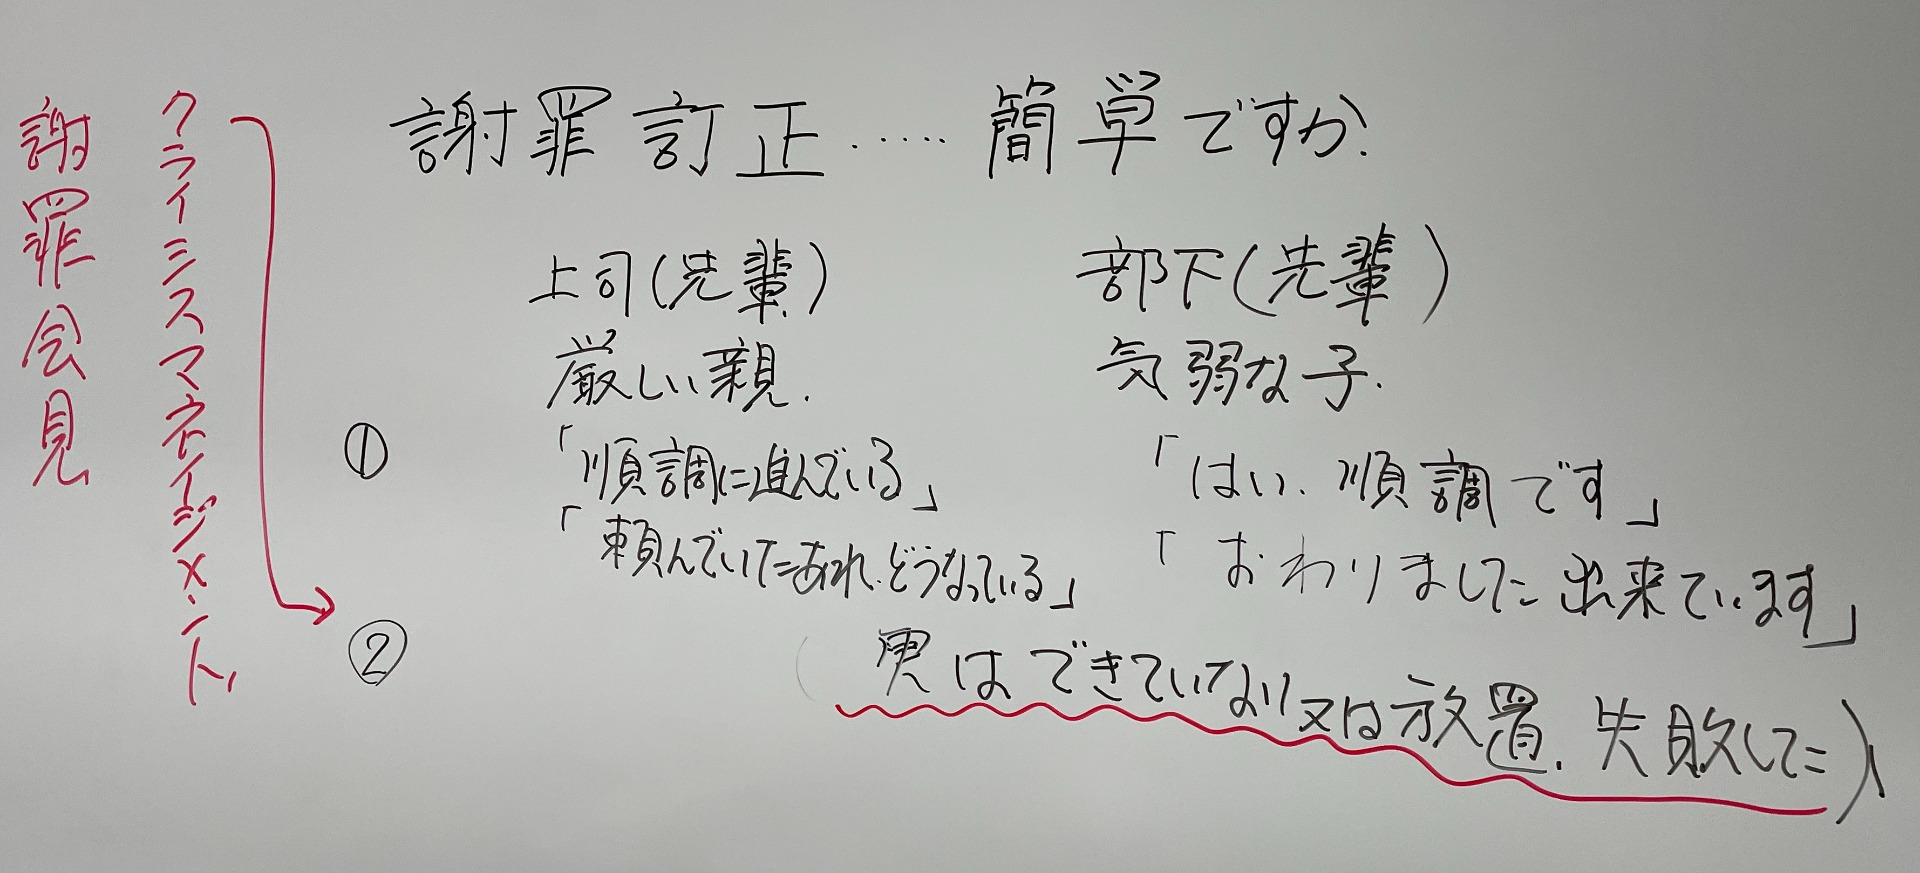 謝罪会見
クライシスマネイジメント
謝罪訂正……簡単ですか?
上司(先輩) 部下(先輩)
厳しい親. 気弱な子.
① 「順調に進んでいる」 「はい、順調です」
「頼んでいたあれ、どうなっている」 「おわりました 出来ています」
②
(実はできていない又は放置、失敗した)